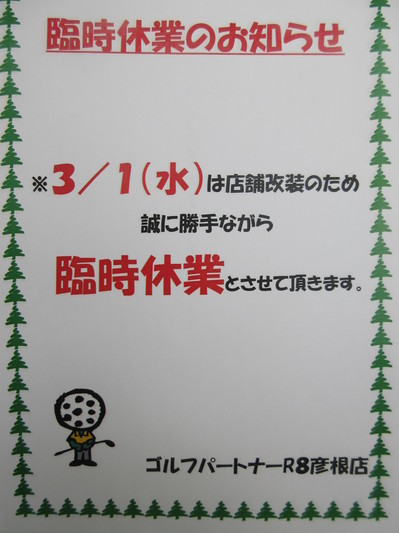 臨時休業のお知らせ
※３／１(水)は店舗改装のため
誠に勝手ながら
臨時休業とさせて頂きます。
ゴルフパートナーR8彦根店